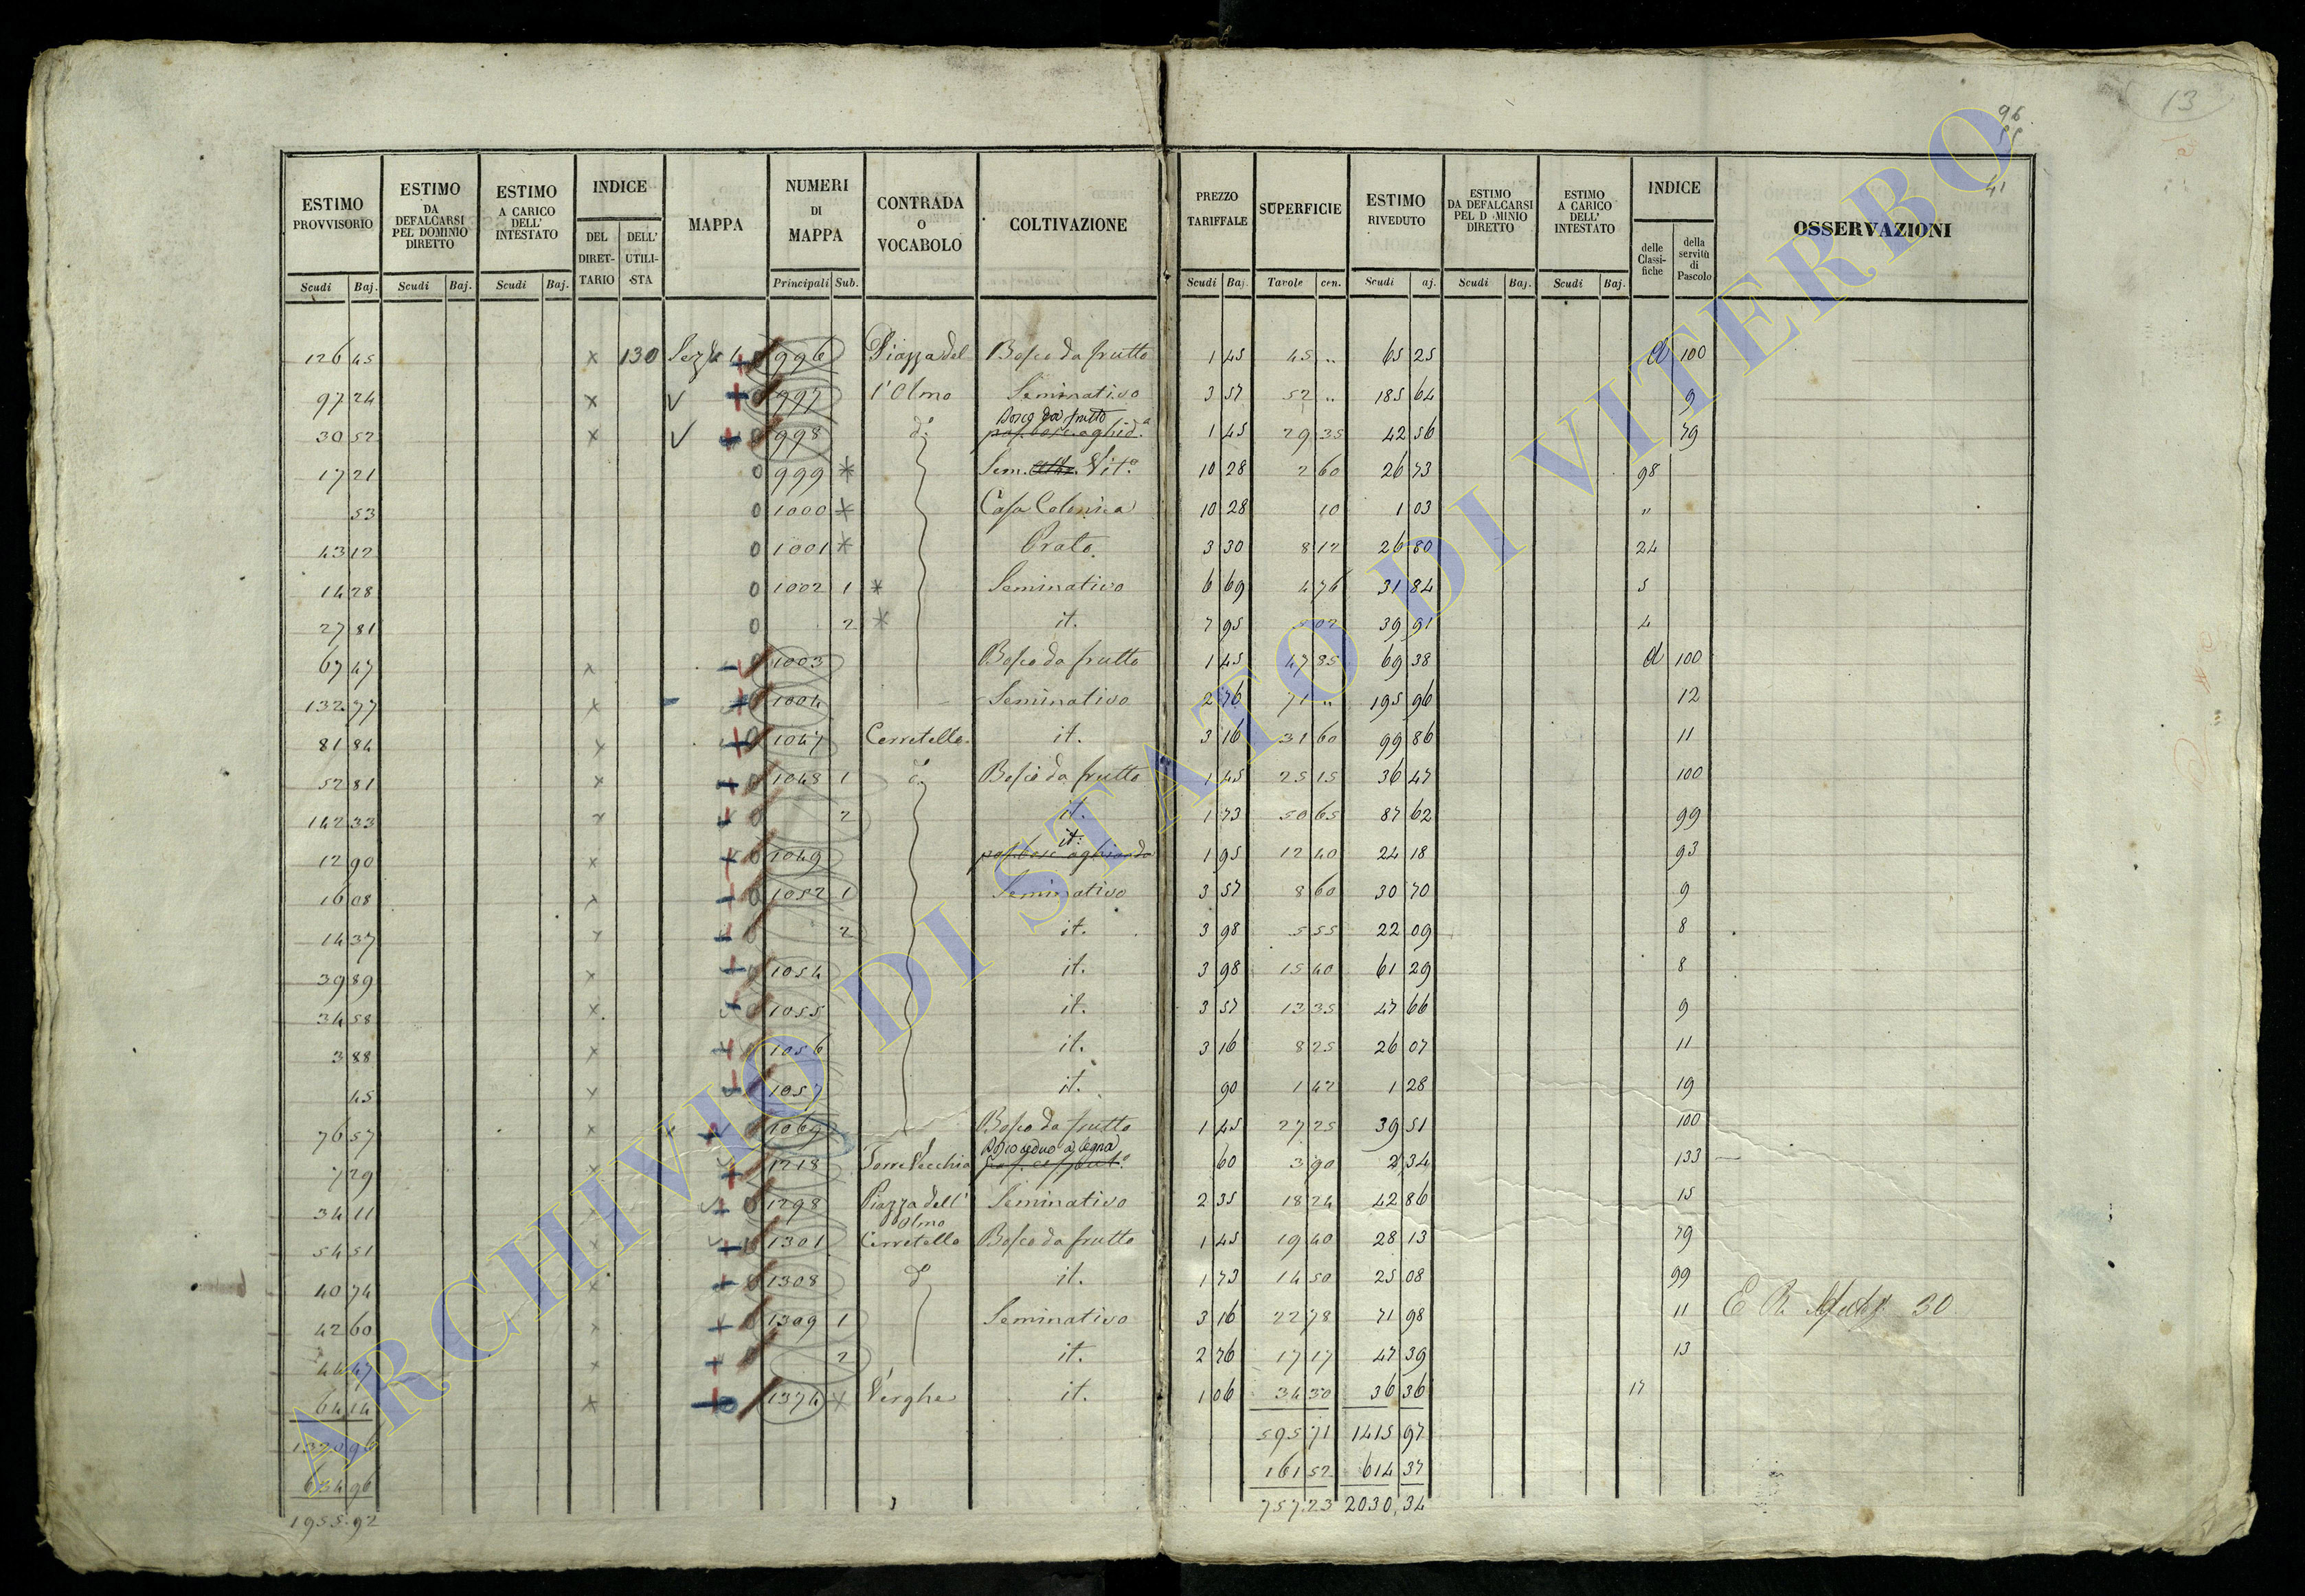 13
96
55
41
ESTIMO PROVVISORIO | ESTIMO DA DEFALCARSI PEL DOMINIO DIRETTO | ESTIMO A CARICO DELL' INTESTATO | INDICE | MAPPA | NUMERI DI MAPPA | CONTRADA O VOCABOLO | COLTIVAZIONE | PREZZO TARIFFALE | SUPERFICIE | ESTIMO RIVEDUTO | ESTIMO DA DEFALCARSI PEL D MINIO DIRETTO | ESTIMO A CARICO DELL' INTESTATO | INDICE | OSSERVAZIONI
DEL DIRETTARIO | DELL' UTILISTA | delle Classifiche | della servitù di Pascolo
Scudi | Baj. | Scudi | Baj. | Scudi | Baj. | Principali | Sub. | Scudi | Baj. | Tavole | cen. | Scudi | aj. | Scudi | Baj. | Scudi | Baj.
126 45 x 130 Sezne 4 0 996 Piazza del Bosco da frutto 1 45 45 „ 65 25 d 100
97 24 x 0 997 l'Olmo Seminativo 3 57 52 „ 185 64 9
Bosco da frutto
30 52 x 0 998 do 1 45 29 35 42 56 79
17 21 0 999 Sem. Vit.o 10 28 2 60 26 73 98
53 0 1000 Casa Colonica 10 28 10 1 03 „
43 12 0 1001 Prato 3 30 8 12 26 80 24
14 28 0 1002 1 Seminativo 6 69 4 76 31 84 5
27 81 0 2 it. 7 95 5 02 39 91 4
67 47 x 0 1003 Bosco da frutto 1 45 47 85 69 38 d 100
132 77 x 0 1004 Seminativo 2 76 71 „ 195 96 12
81 84 x 0 1047 Cerretello it. 3 16 31 60 99 86 11
52 81 x 0 1048 1 do Bosco da frutto 1 45 25 15 36 47 100
142 33 x 0 2 it. 1 73 50 65 87 62 99
it.
12 90 x 0 1049 pas. bosc. a ghianda 1 95 12 40 24 18 93
16 08 x 0 1052 1 Seminativo 3 57 8 60 30 70 9
14 37 x 0 2 it. 3 98 5 55 22 09 8
39 89 x 0 1054 it. 3 98 15 40 61 29 8
34 58 x 0 1055 it. 3 57 13 35 47 66 9
3 88 x 0 1056 it. 3 16 8 25 26 07 11
45 x 0 1057 it. 90 1 42 1 28 19
76 57 x 1069 Bosco da frutto 1 45 27 25 39 51 100
Bosco ceduo a legna
7 29 x 1218 Torre Vecchia 60 3 90 2 34 133
34 11 x 0 1298 Piazza dell' Olmo Seminativo 2 35 18 24 42 86 15
54 51 x 0 1301 Cerretello Bosco da frutto 1 45 19 40 28 13 79
40 74 x 0 1308 do it. 1 73 14 50 25 08 99
42 60 x 0 1309 1 Seminativo 3 16 22 78 71 98 11 30
44 47 x 0 2 it. 2 76 17 17 47 39 13
64 14 x 0 1374 Verghe it. 1 06 34 30 36 36 17
1320 96 595 71 1415 97
634 96 161 52 614 37
1955.92 757.23 2030,34
ARCHIVIO DI STATO DI VITERBO